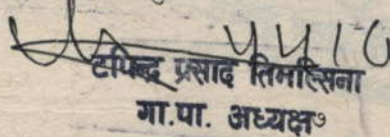 टपिन्द्र प्रसाद तिमल्सिना
गा.पा. अध्यक्ष